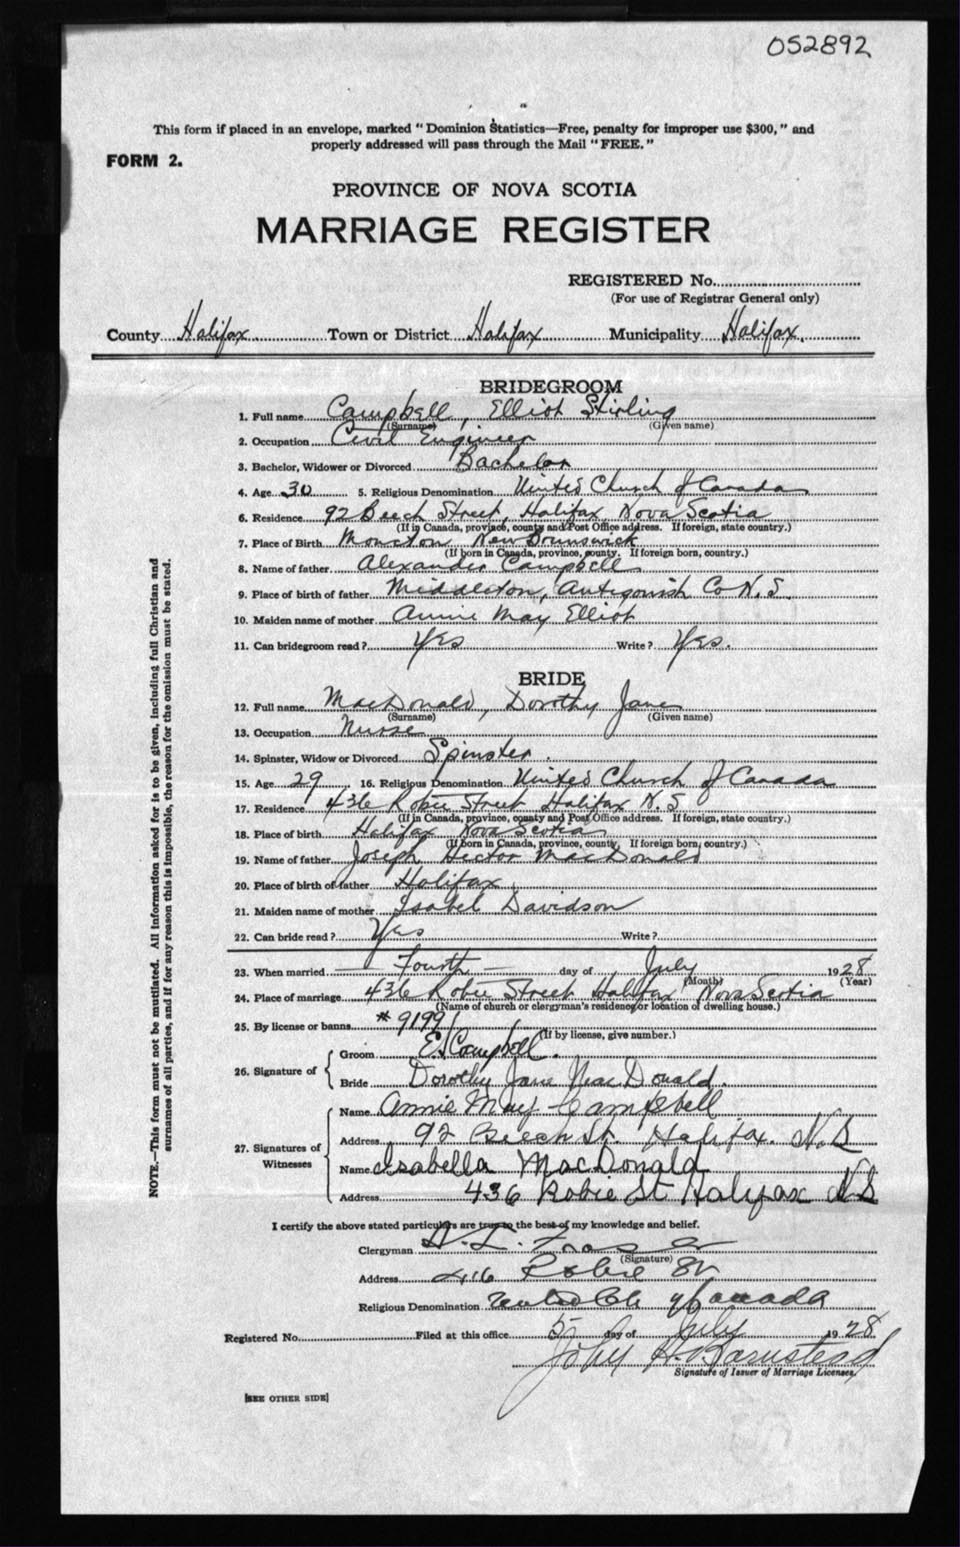 052892
This form if placed in an envelope, marked "Dominion Statistics—Free, penalty for improper use $300," and
properly addressed will pass through the Mail "FREE."
FORM 2.
PROVINCE OF NOVA SCOTIA
MARRIAGE REGISTER
REGISTERED No.
(For use of Registrar General only)
County Halifax Town or District Halifax Municipality Halifax.
BRIDEGROOM
1. Full name Campbell, Elliot Stirling
(Surname) (Given name)
2. Occupation Civil Engineer
3. Bachelor, Widower or Divorced Bachelor
4. Age 30 5. Religious Denomination United Church of Canada
6. Residence 92 Beech Street, Halifax Nova Scotia
(If in Canada, province, county and Post Office address. If foreign, state country.)
7. Place of Birth Moncton New Brunswick
(If born in Canada, province, county. If foreign born, country.)
8. Name of father Alexander Campbell
9. Place of birth of father Middleton, Antigonish Co N.S.
10. Maiden name of mother Annie May Elliot
11. Can bridegroom read? Yes Write? Yes.
BRIDE
12. Full name MacDonald, Dorothy Jane
(Surname) (Given name)
13. Occupation Nurse
14. Spinster, Widow or Divorced Spinster
15. Age 29 16. Religious Denomination United Church of Canada
17. Residence 436 Robie Street Halifax N.S
(If in Canada, province, county and Post Office address. If foreign, state country.)
18. Place of birth Halifax Nova Scotia
(If born in Canada, province, county. If foreign born, country.)
19. Name of father Joseph Hector MacDonald
20. Place of birth of father Halifax
21. Maiden name of mother Isabel Davidson
22. Can bride read? Yes Write?
23. When married Fourth day of July 1928
(Month) (Year)
24. Place of marriage 436 Robie Street Halifax Nova Scotia
(Name of church or clergyman's residence or location of dwelling house.)
25. By license or banns #9199
(If by license, give number.)
26. Signature of
Groom E. Campbell.
Bride Dorothy Jane MacDonald.
27. Signatures of Witnesses
Name Annie May Campbell
Address 92 Beech St. Halifax. N.S
Name Isabella MacDonald
Address 436 Robie St Halifax NS
I certify the above stated particulars are true to the best of my knowledge and belief.
Clergyman Fraser
(Signature)
Address 416 Robie St
Religious Denomination United Ch of Canada
Registered No. Filed at this office 5 day of July 1928
John H. Barnstead
Signature of Issuer of Marriage Licenses.
[SEE OTHER SIDE]
NOTE.—This form must not be mutilated. All information asked for is to be given, including full Christian and
surnames of all parties, and if for any reason this is impossible, the reason for the omission must be stated.